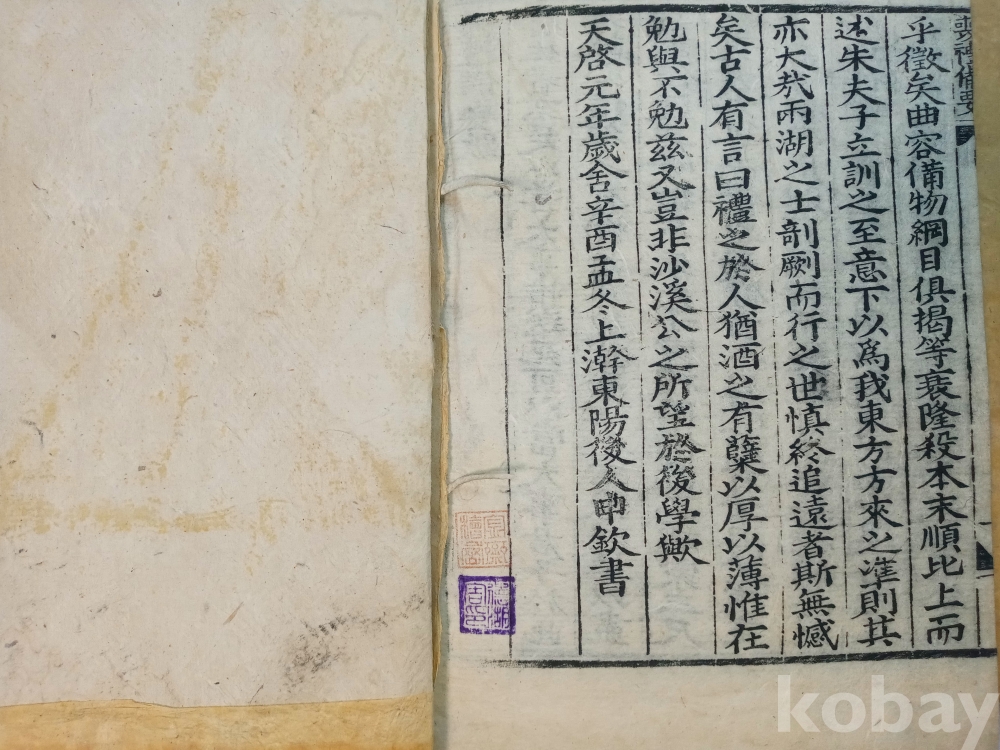 喪禮備要
乎徵矣曲容備物綱目俱揭等衰隆殺本末順比上而
述朱夫子立訓之至意下以爲我東方方來之準則其
亦大哉兩湖之士剞劂而行之世愼終追遠者斯無憾
矣古人有言曰禮之於人猶酒之有蘖以厚以薄惟在
勉與不勉茲又豈非沙溪公之所望於後學歟
天啓元年歲舍辛酉孟冬上澣東陽後人申欽書
kobay